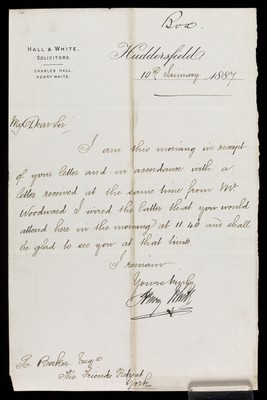 Box.
HALL & WHITE.
SOLICITORS.
CHARLES HALL.
HENRY WHITE.
Huddersfield,
10th January 1887
My Dear Sir
I am this morning in receipt
of your letter and in accordance with a
letter received at the same time from Mr
Woodward I wired the latter that you would
attend here in the morning at 11.40 and shall
be glad to see you at that time.
I remain
Yours truly
Henry White
R. Baker. Esqre
The Friends Retreat
York